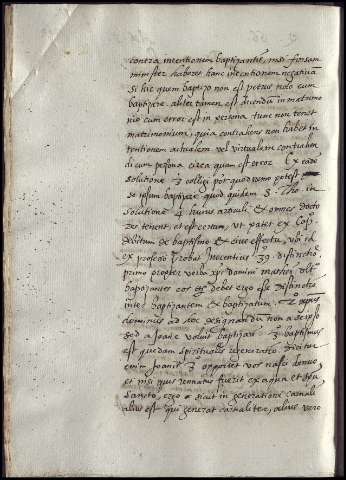 contra intentionem baptizantis, nisi forsam
minister haberet hanc intentionem negativā
si hic quem baptizo non est petrus nolo eum
baptizare. aliter tamen est dicendū in matrimo
nio cum error est in persona tunc non tenet
matrimonium, quia contrahens non habet in
tentionem actualem vel virtualem contrahen
di cum persona circa quam est error. Ex eadē
solutione 3 colligi por quod nemo potest
se ipsum baptizare quod quidem S. Tho. in
solutione 4 huius articuli et omnes docto
res tenent, et est certum, ut patet ex
debitum de baptismo et eius effectu, ubi
ex professo probat Inocentius 39
primo propter verba xpi domini
baptizantes eos etc debet ergo esse distinctio
inter baptizantem et baptizatum. 2º
dominus ad hoc designandum non a se ipso
sed a Joane voluit baptizari 3 baptismus
est quedam spiritualis regeneratio dicitur
enim Joanis 3 oportet vos nasci denuo
et nisi quis renatus fuerit ex aqua et spū
sancto, ergo sicut in generatione carnali
alius est qui generat carnaliter, alius vero